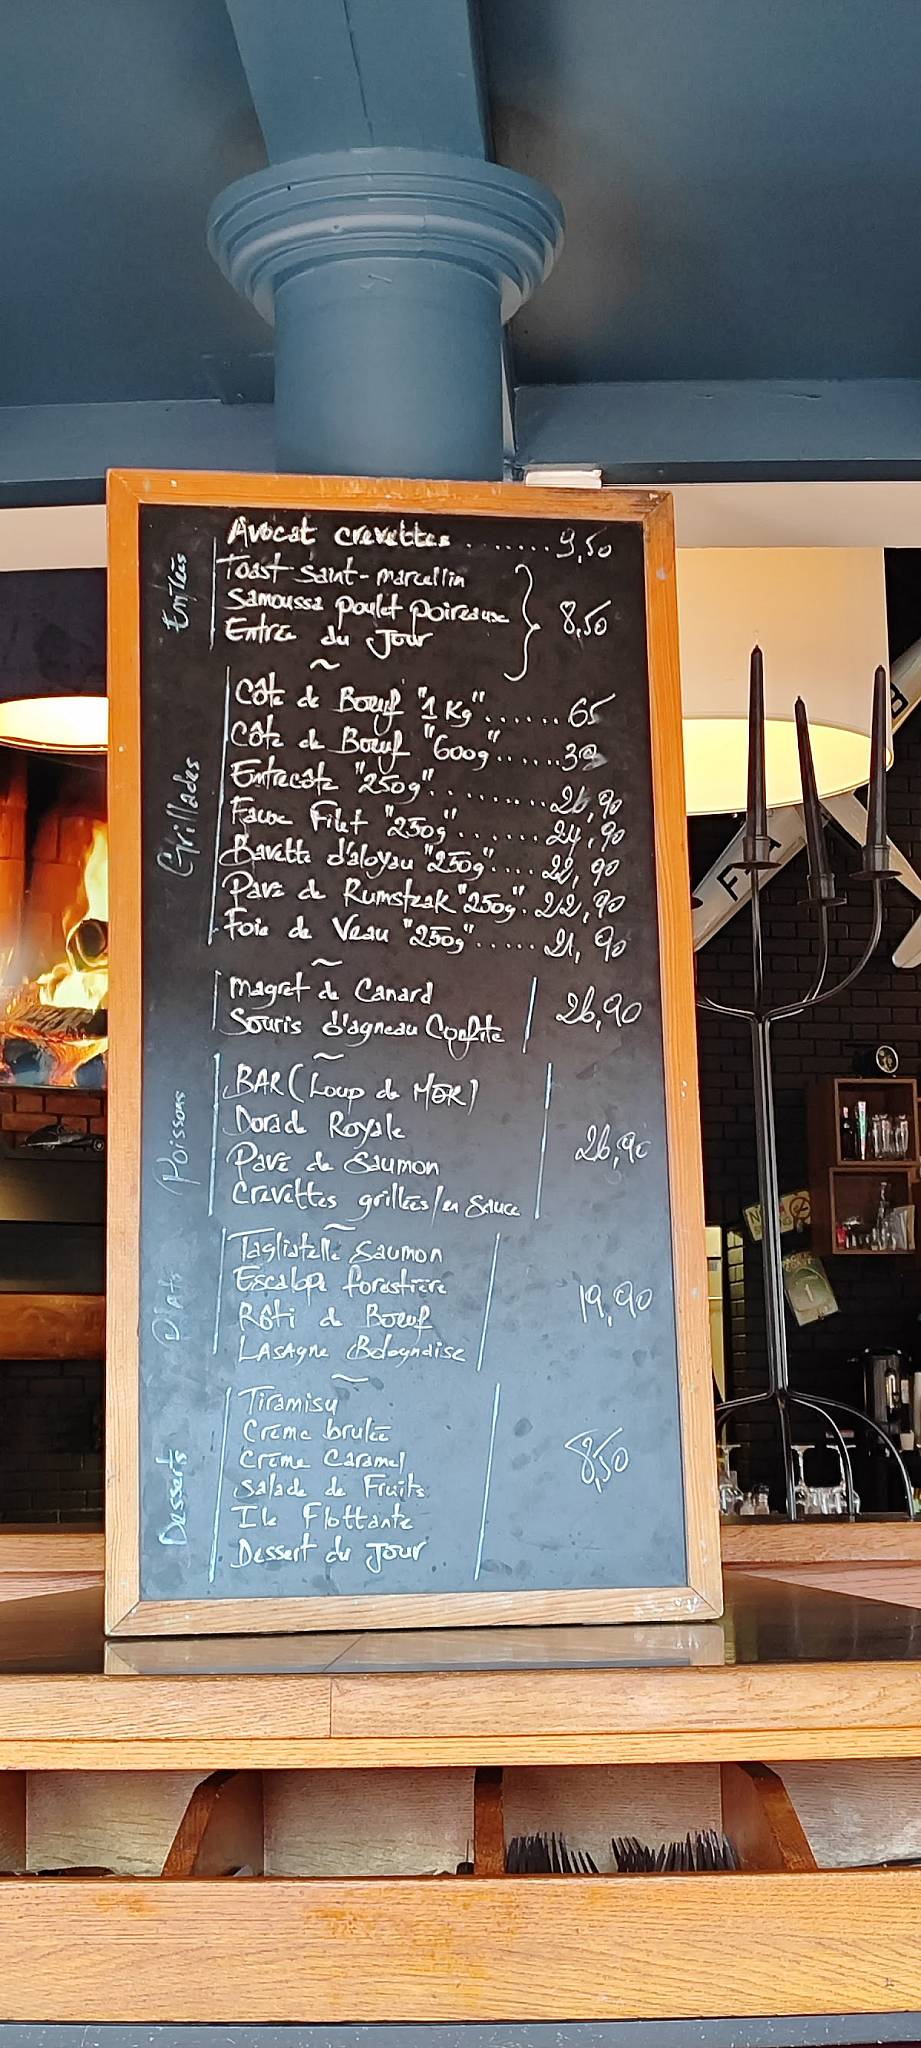 Entrées
Avocat crevettes ....... 9,50
Toast Saint-marcellin
Samoussa poulet poireaux
Entrée du Jour
8,50
~
Grillades
Côte de Boeuf "1 Kg" ...... 65
Côte de Boeuf "600g" ...... 39
Entrecôte "250g" ......... 26,90
Faux Filet "250g" ...... 24,90
Bavette d'aloyau "250g" .... 22,90
Pavé de Rumsteak "250g" . 22,90
Foie de Veau "250g" ..... 21,90
~
Magret de Canard
Souris d'agneau Confite
26,90
~
Poissons
BAR (Loup de MER)
Dorade Royale
Pavé de Saumon
Crevettes grillées/en Sauce
26,90
~
Plats
Tagliatelle Saumon
Escalope forestière
Rôti de Boeuf
LASAgne Bolognaise
19,90
~
Desserts
Tiramisu
Crème brulée
Crème Caramel
Salade de Fruits
Ile Flottante
Dessert du Jour
8,50